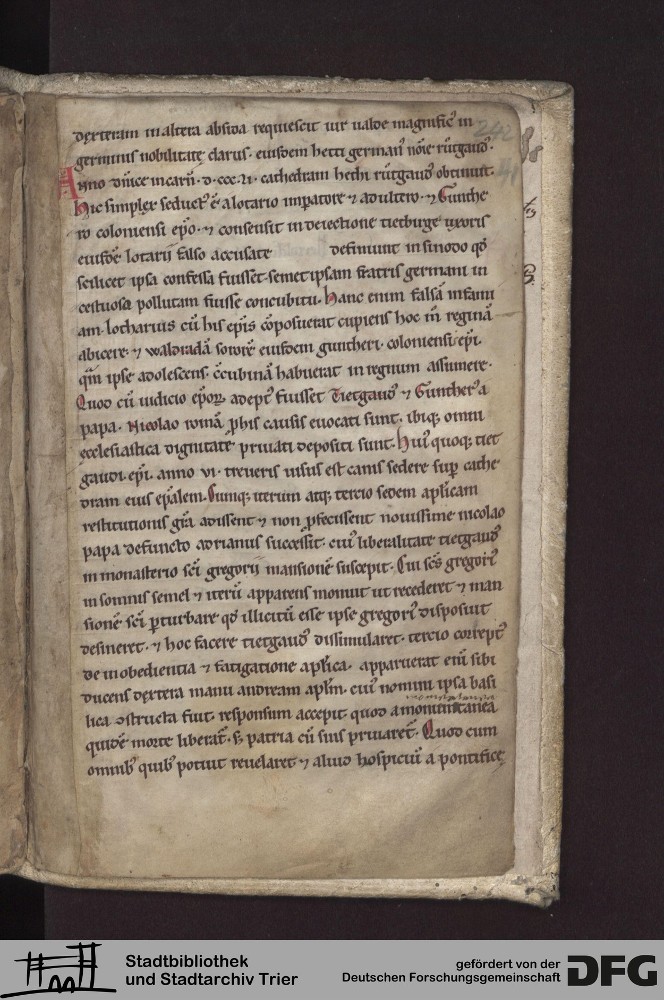 dexteram in altera absida requiescit uir ualde magnific' in
germinis nobilitate clarus. eiusdem hetti german' nōie rūtgaud'.
Anno dn̄ice incarn̄. d.ccc.xl. cathedram hethi rūtgaud' obtinuit.
Hic simplex seduct' ē a lotario imperatore & adultero. & Gunthe
ro coloniensi ep̄o. & consensit in deiectione tietburge uxoris
eiusdē lotarii falso accusate definiunt in sinodo qđ
scilicet ipsa confessa fuisset. semet ipsam fratris germani in
cestuosa pollutam fuisse concubitu. Hanc enim falsā infami
am. lotharius cū his ep̄is cōposuerat cupiens hoc m̄ reginā
abicere. & waldradā sororē eiusdem guntheri. coloniensis ep̄i.
q̄m ipse adolescens. cc̄ubinā habuerat in regnum assumere.
Quod cū iudicio ep̄orꝫ adept' fuisset Tietgaud' & Gunther' a
papa. Nicolao romā p̄ his causis euocati sunt. ibiqꝫ omni
ecclesiastica dignitate priuati depositi sunt. Hui' quoqꝫ tiet
gaudi. ep̄i. anno vi. treueris uisus est canis sedere sup̄ cathe
dram eius ep̄alem. Cumqꝫ iterum atqꝫ tercio sedem ap̄licam
restitutionis gr̄a adissent & non p̄fecissent nouissime nicolao
papa defuncto adrianus successit. cui' liberalitate tietgaud'
in monasterio sc̄i gregorii mansionē suscepit. Cui sc̄s gregori'
in somnis semel & iterū apparens monuit ut recederet & man
sionē sc̄i p̄turbare qđ illicitū esse ipse gregori' disposuit
desineret. & hoc facere tietgaud' dissimularet. tercio correpт'
de inobedientia & fatigatione ap̄lica. apparuerat eni sibi
ducens dextera manu andream ap̄lm. cui' nomini ipsa basi
lica ɔstructa fuit. responsum accepit. quod
quidē morte liberat'. s; patria cū suis priuaret'. Quod cum
omnib' quib' potuit reuelaret & aliud hospiciū a pontifice
242
Stadtbibliothek
und Stadtarchiv Trier
gefördert von der
Deutschen Forschungsgemeinschaft
DFG